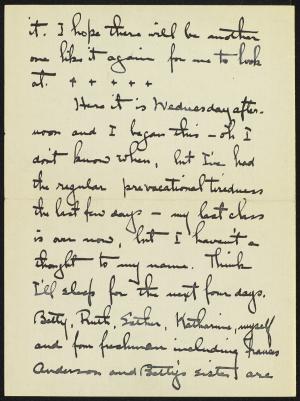 it. I hope there will be another
one like it again for me to look
at. + + + + +
Here it is Wednesday after-
noon and I began this – oh I
don't know when, but I've had
the regular prevacational tiredness
the last few days – my last class
is over now, but I haven't a
thought to my name. Think
I'll sleep for the next four days.
Betty, Ruth, Esther, Katharine, myself
and four freshmen including Frances
Anderson and Betty's sister are